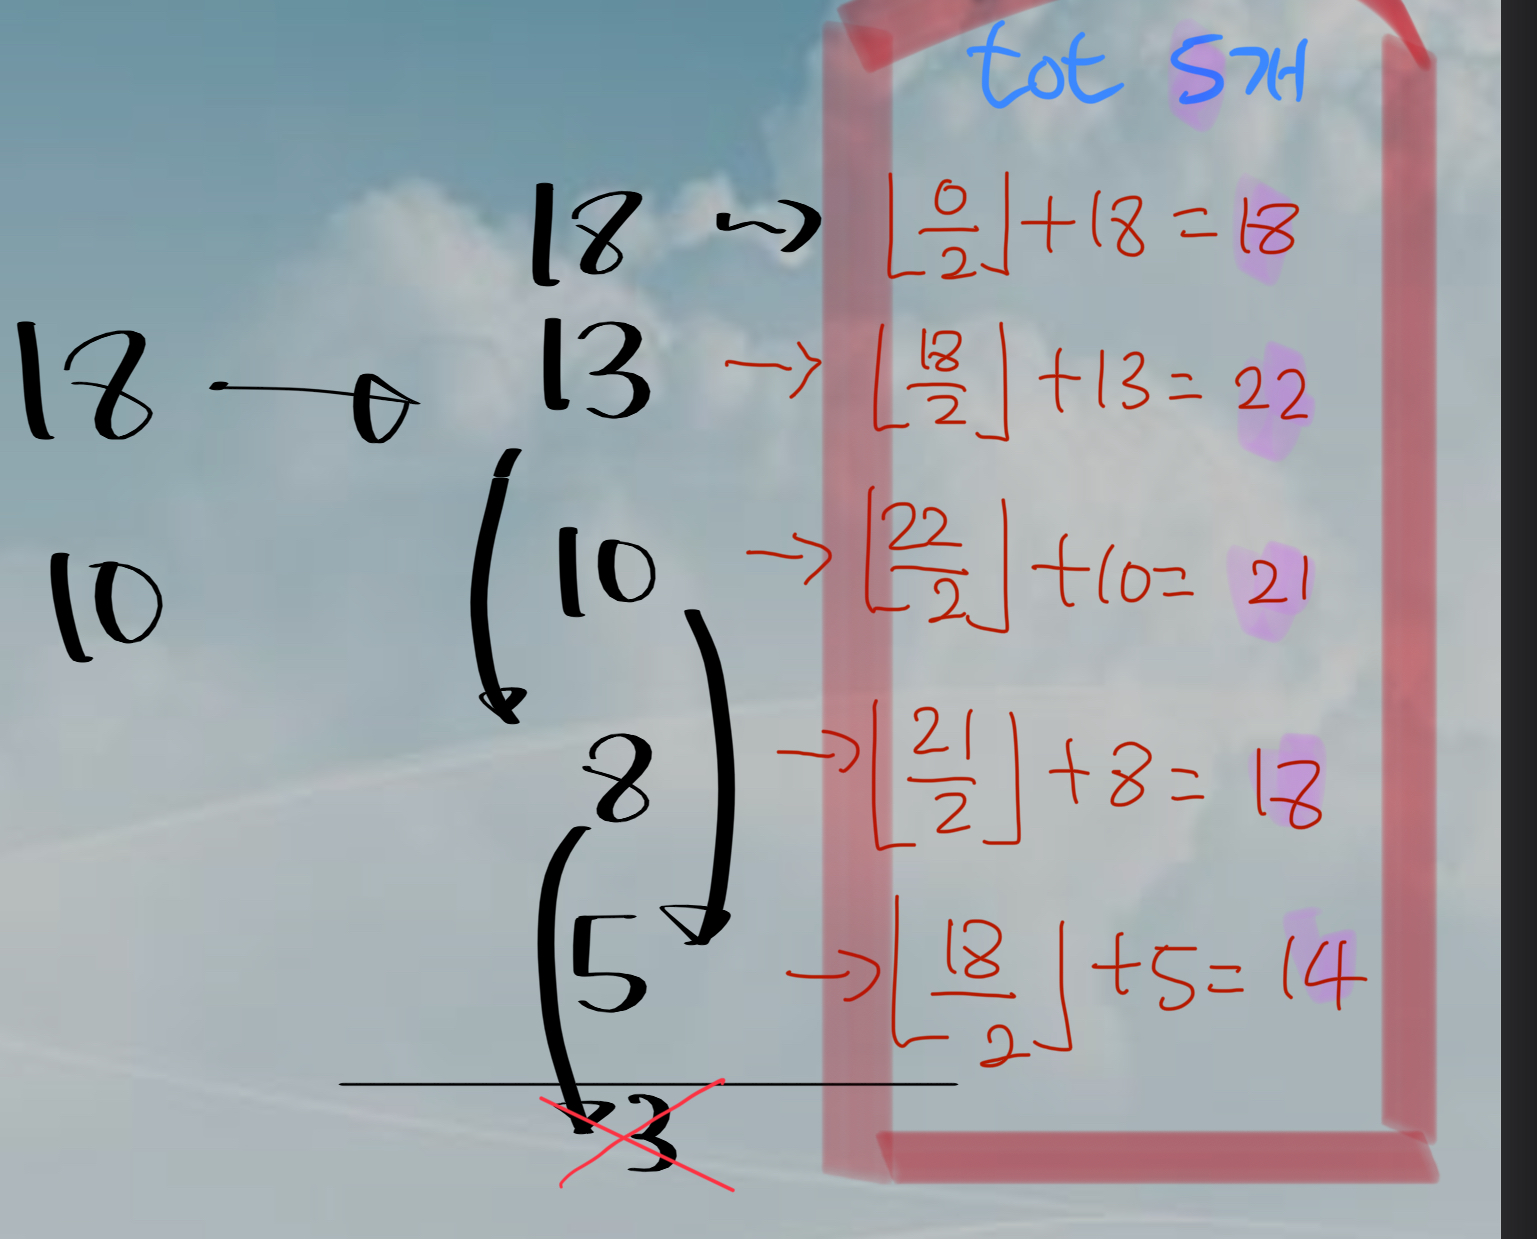 tot 5개
18 → ⌊0/2⌋ + 18 = 18
18 → 0
13 → ⌊18/2⌋ + 13 = 22
10
10 → ⌊22/2⌋ + 10 = 21
8 → ⌊21/2⌋ + 8 = 18
5 → ⌊18/2⌋ + 5 = 14
3